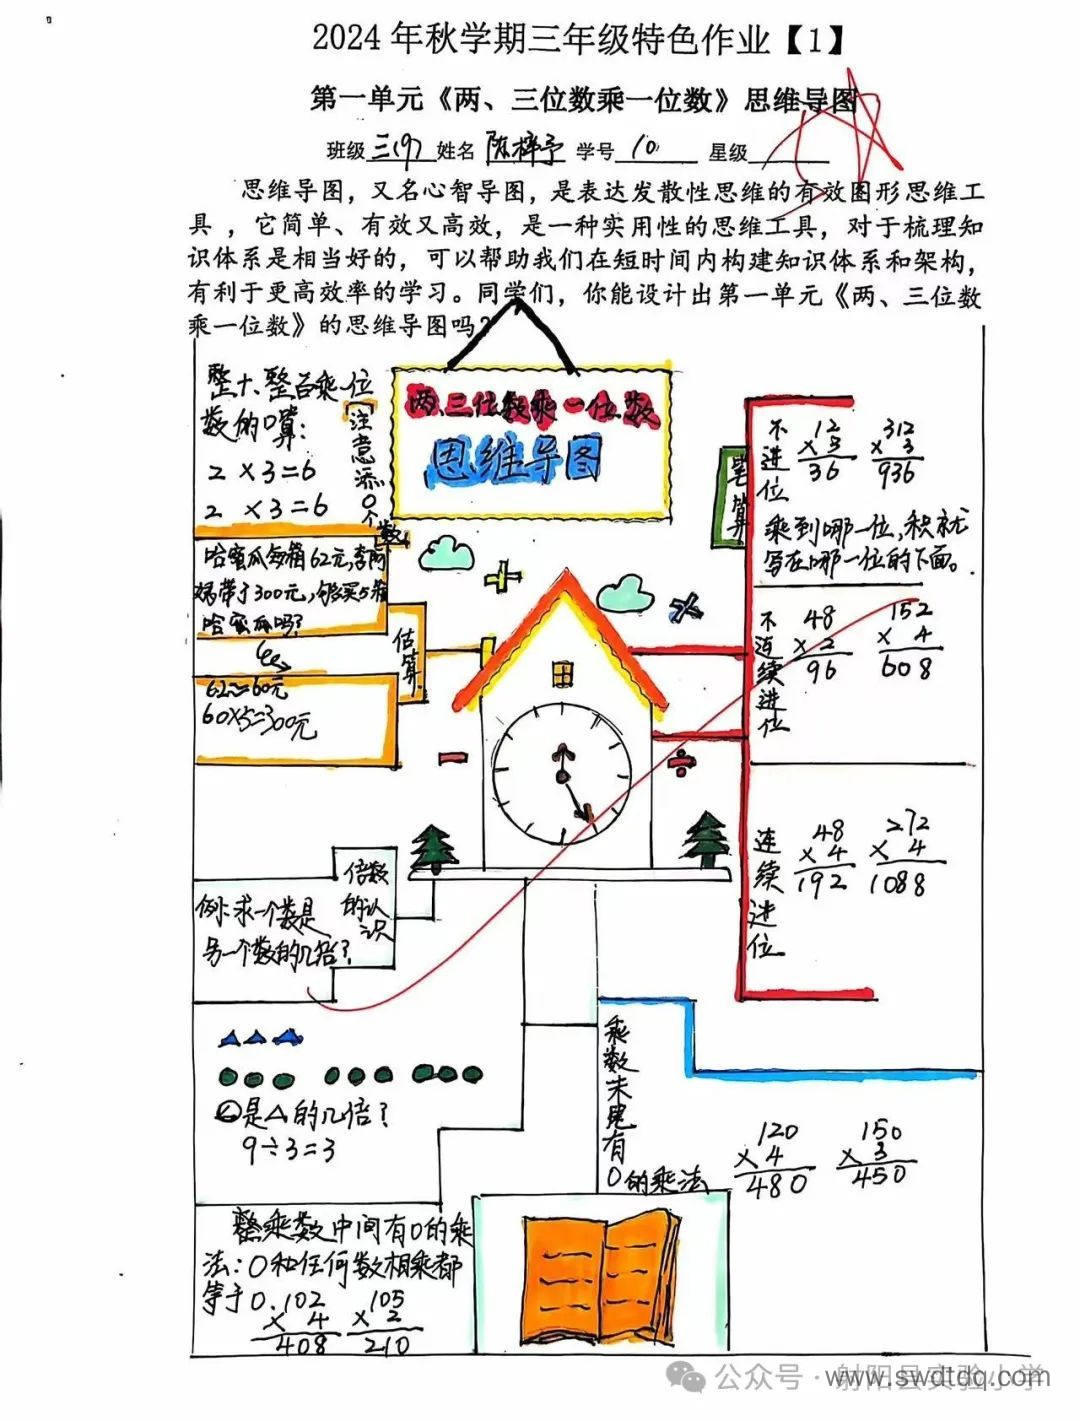 2024年秋学期三年级特色作业【1】
第一单元《两、三位数乘一位数》思维导图
班级 三(9) 姓名 陈梓予 学号 10 星级
思维导图，又名心智导图，是表达发散性思维的有效图形思维工
具，它简单、有效又高效，是一种实用性的思维工具，对于梳理知
识体系是相当好的，可以帮助我们在短时间内构建知识体系和架构，
有利于更高效率的学习。同学们，你能设计出第一单元《两、三位数
乘一位数》的思维导图吗？
两、三位数乘一位数
思维导图
整十、整百乘一位
数的口算：
2×3=6
2×3=6
注意添0个数
哈蜜瓜每箱62元,李阿
姨带了300元,够买5箱
哈蜜瓜吗?
估算
62≈60元
60×5=300元
笔算
不进位
12
×3
36
312
×3
936
乘到哪一位,积就
写在哪一位的下面。
不连续进位
48
×2
96
152
×4
608
连续进位
48
×4
192
272
×4
1088
倍数的认识
例:求一个数是
另一个数的几倍?
是△的几倍?
9÷3=3
乘数末尾有
0的乘法
120
×4
480
150
×3
450
乘数中间有0的乘
法:0和任何数相乘都
等于0.
102
×4
408
105
×2
210
公众号·射阳县实验小学
www.swdtdq.com